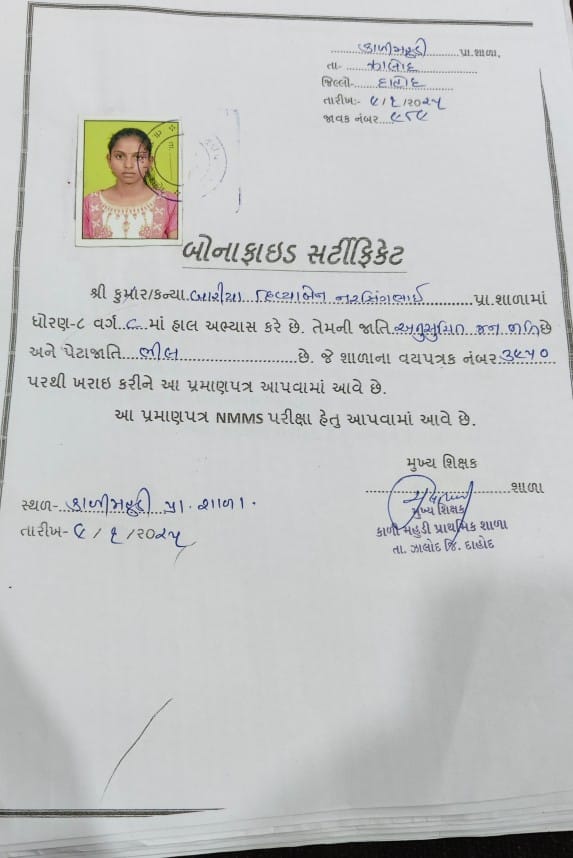 કાળીમહુડી પ્રા.શાળા,
તા- ઝાલોદ
જિલ્લો- દાહોદ
તારીખ:- ૯/૧/૨૦૨૫
જાવક નંબર
બોનાફાઇડ સર્ટીફિકેટ
શ્રી કુમાર/કન્યા. બારીયા દિવ્યાબેન નરસિંગભાઈ પ્રા.શાળામાં
ધોરણ-૮ વર્ગ ૮ માં હાલ અભ્યાસ કરે છે. તેમની જાતિ અનુસુચિત જન જાતિ છે
અને પેટાજાતિ ભીલ છે. જે શાળાના વયપત્રક નંબર ૩૯૫૦
પરથી ખરાઇ કરીને આ પ્રમાણપત્ર આપવામાં આવે છે.
આ પ્રમાણપત્ર NMMS પરીક્ષા હેતુ આપવામાં આવે છે.
મુખ્ય શિક્ષક
શાળા
સ્થળ- કાળીમહુડી પ્રા. શાળા.
તારીખ- ૯/૧/૨૦૨૫
મુખ્ય શિક્ષક
કાળી મહુડી પ્રાથમિક શાળા
તા. ઝાલોદ જિ. દાહોદ